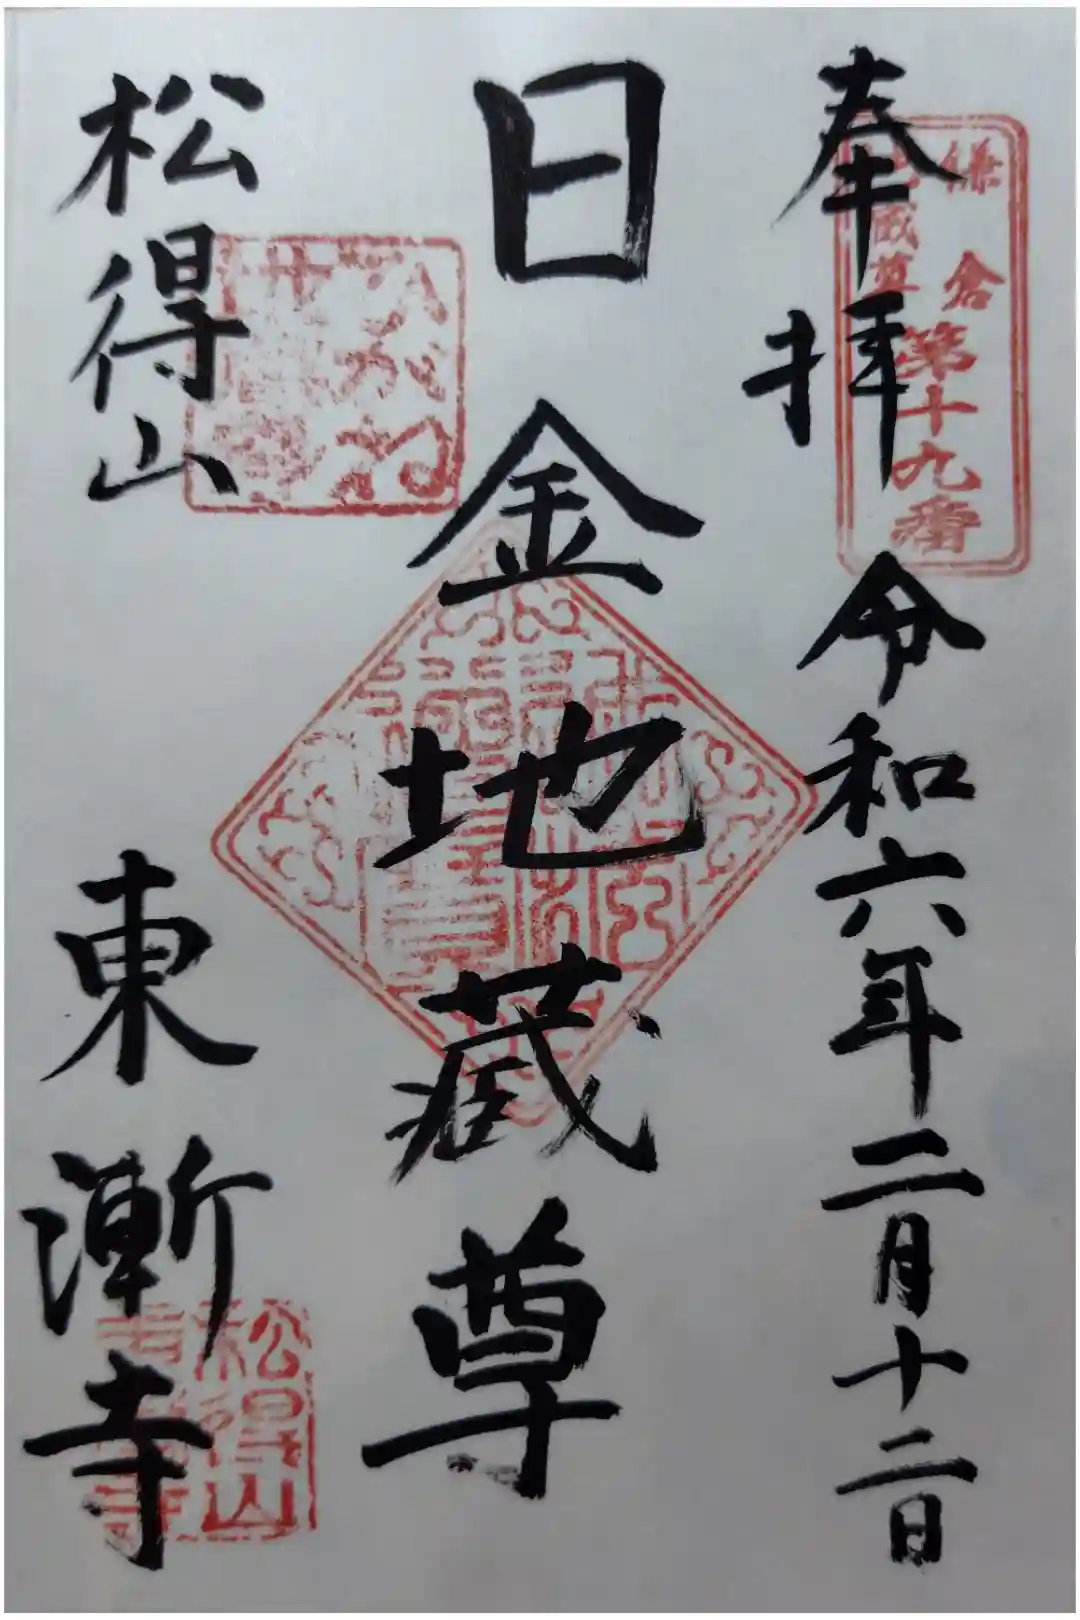 奉拝 令和六年二月十二日
鎌倉
地蔵尊
第十九番
日金地蔵尊
松得山
東漸寺
松得山